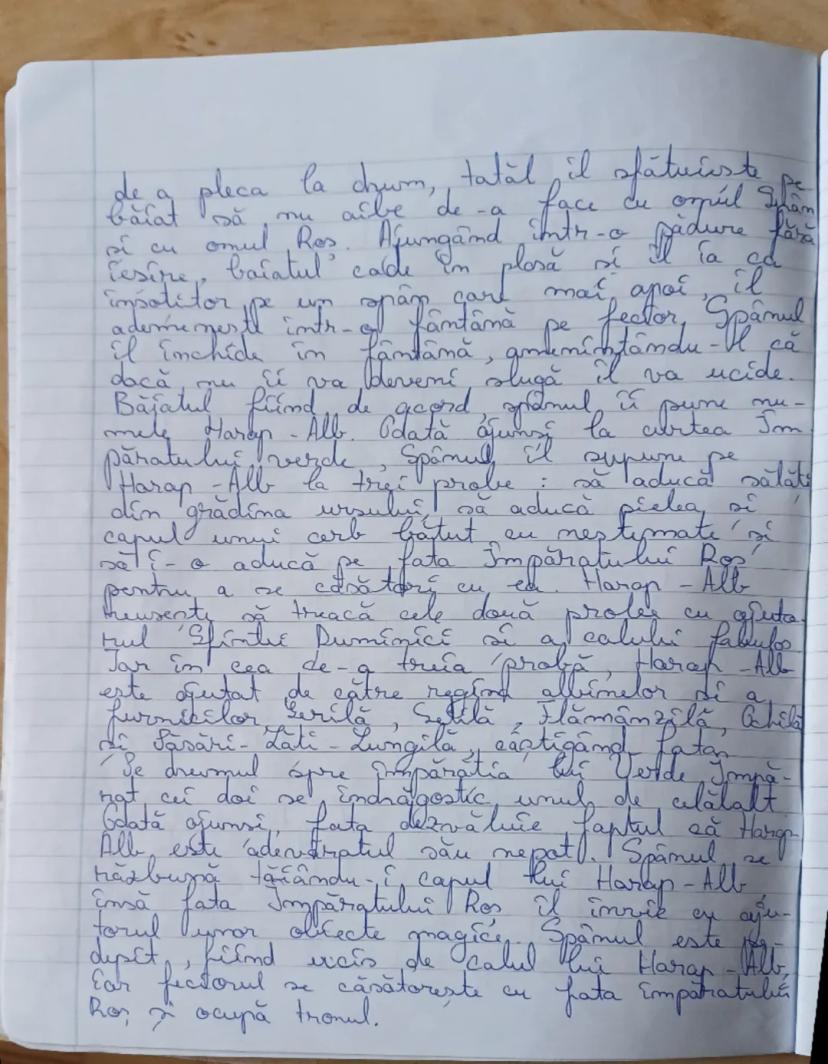 de a pleca la drum, tatăl îl sfătuiește pe
băiat să nu aibe de-a face cu omul Spân
și cu omul Roș. Ajungând într-o pădure fără
ieșire, baiatul cade în plasă si îl ia ca
însoțitor pe un spân care mai apoi, îl
ademenește într-o fântână pe fector. Spânul
îl închide în fântână, amenințându-l că
dacă nu îi va deveni slugă îl va ucide.
Băiatul fiind de acord, spânul îi pune nu-
mele Harap-Alb. Odată ajunsi la curtea Îm
păratului verde, Spânul îl supune pe
Harap-Alb la trei probe: să aducă sălăți
din grădina ursului, să aducă pielea si
capul unui cerb bătut cu nestemate si
să i-o aducă pe fata Împăratului Roș
pentru a se căsători cu ea. Harap-Alb
reusește să treacă cele două probe cu ajuto-
rul Sfintei Duminici si a calului fabulos
Iar în cea de-a treia probă, Harap-Alb
este ajutat de către regina albinelor si a
furnicilor, Gerilă, Setilă, Flămânzilă, Ochilă
si Păsări-Lăti-Lungilă, câștigând fata.
Pe drumul spre împărătia lui Verde Împă-
rat cei doi se îndrăgostic unul de celălalt.
Odată ajunsi, fata dezvăluie faptul că Harap
Alb este adevăratul său nepot. Spânul se
răzbună tăiându-i capul lui Harap-Alb,
însă fata Împăratului Roș îl învie cu aju-
torul unor obiecte magice. Spânul este pe-
depsit, fiind ucis de calul lui Harap-Alb,
iar fectorul se căsătorește cu fata împăratului
Roș și ocupă tronul.